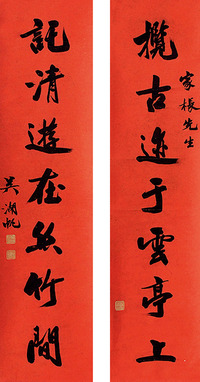 攬古迹于雲亭上
家棖先生
託清遊在魚竹間
吳湖帆